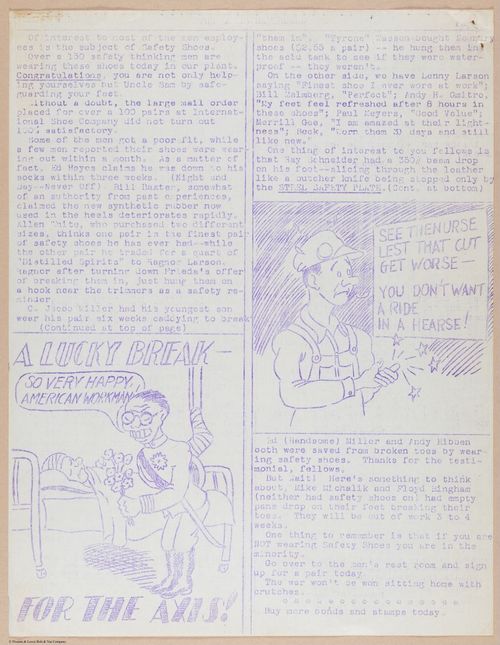 Of interest to most of the men employ-
ees is the subject of Safety Shoes.
Over a 100 safety thinking men are
wearing these shoes today in our plant.
Congratulations, you are not only help-
ing yourselves but Uncle Sam by safe-
guarding your feet.
Without a doubt, the large mail order
placed for over a 100 pairs at Internat-
ional Shoe Company did not turn out
100% satisfactory.
Some of the men got a poor fit; while
a few men reported their shoes were wear-
ing out within a month. As a matter of
fact, Ed Hoyes claims he was down to his
socks within three weeks. (Night and
Day--Never Off) Bill Baxter, somewhat
of an authority from past experiences,
claimed the new synthetic rubber now
used in the heels deteriorates rapidly.
Allen White, who purchased two different
sizes, thinks one pair is the finest pair
of safety shoes he has ever had--while
the other pair he traded for a quart of
"Distilled Spirits" to Ragnor Larson.
Ragnor after turning down Frieda's offer
of breaking them in, just hung them on
a hook near the trimmers as a safety re-
minder.
C. Jacob Miller had his youngest son
wear his pair six weeks
(Continued at top of page)
A LUCKY BREAK—
SO VERY HAPPY,
AMERICAN WORKMAN
FOR THE AXIS!
"them in". "Tyrone" Tasson bought
shoes ($2.55 a pair) -- he hung them in
the acid tank to see if they were water-
proof -- they weren't.
On the other side, we have Lenny Larson
saying "Finest shoe I ever wore at work";
Bill Zahnberg, "Perfect"; Andy H.
"My feet feel refreshed after 8 hours in
these shoes"; Paul Meyers, "Good Value";
Merrill Goe, "I am amazed at their light-
ness"; Book, "Worn them 30 days and still
like new."
One thing of interest to you fellows is
that Ray Schneider had a 350# beam drop
on his foot--slicing through the leather
like a butcher knife being stopped only by
the STEEL SAFETY PLATE. (Cont. at bottom)
SEE THE NURSE
LEST THAT CUT
GET WORSE—
YOU DON'T WANT
A RIDE
IN A HEARSE!
Ed (Handsome) Miller and Andy Hibben
both were saved from broken toes by wear-
ing safety shoes. Thanks for the testi-
monial, fellows.
But Wait! Here's something to think
about, Mike Michalik and Floyd Bingham
(neither had safety shoes on) had empty
pans drop on their feet breaking their
toes. They will be out of work 3 to 4
weeks.
One thing to remember is that if you are
NOT wearing Safety Shoes you are in the
minority.
Go over to the men's rest room and sign
up for a pair today.
The war won't be won sitting home with
crutches.
Buy more bonds and stamps today.